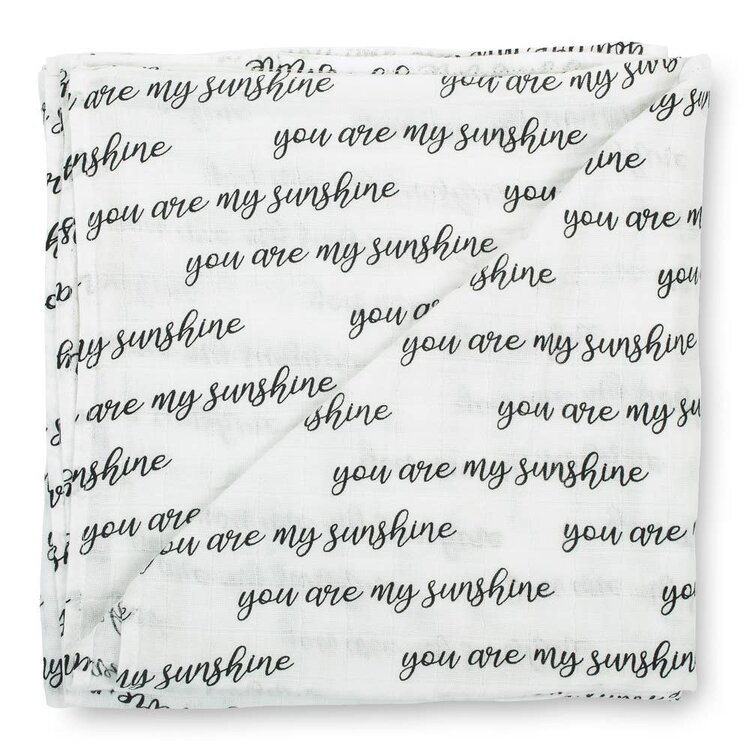 are my sunshine you are my
you are my sunshine
nshine
you are my sunshine you
ine
you are
you are my sunshine
shine you
you a
my sunshine
you are my sunshine
are my sunshine
shine you are my su
nshine
you are my sunshine
you are
ou are my sunshine you are
you are my sunshine yo
my sunshine you are my sunshin